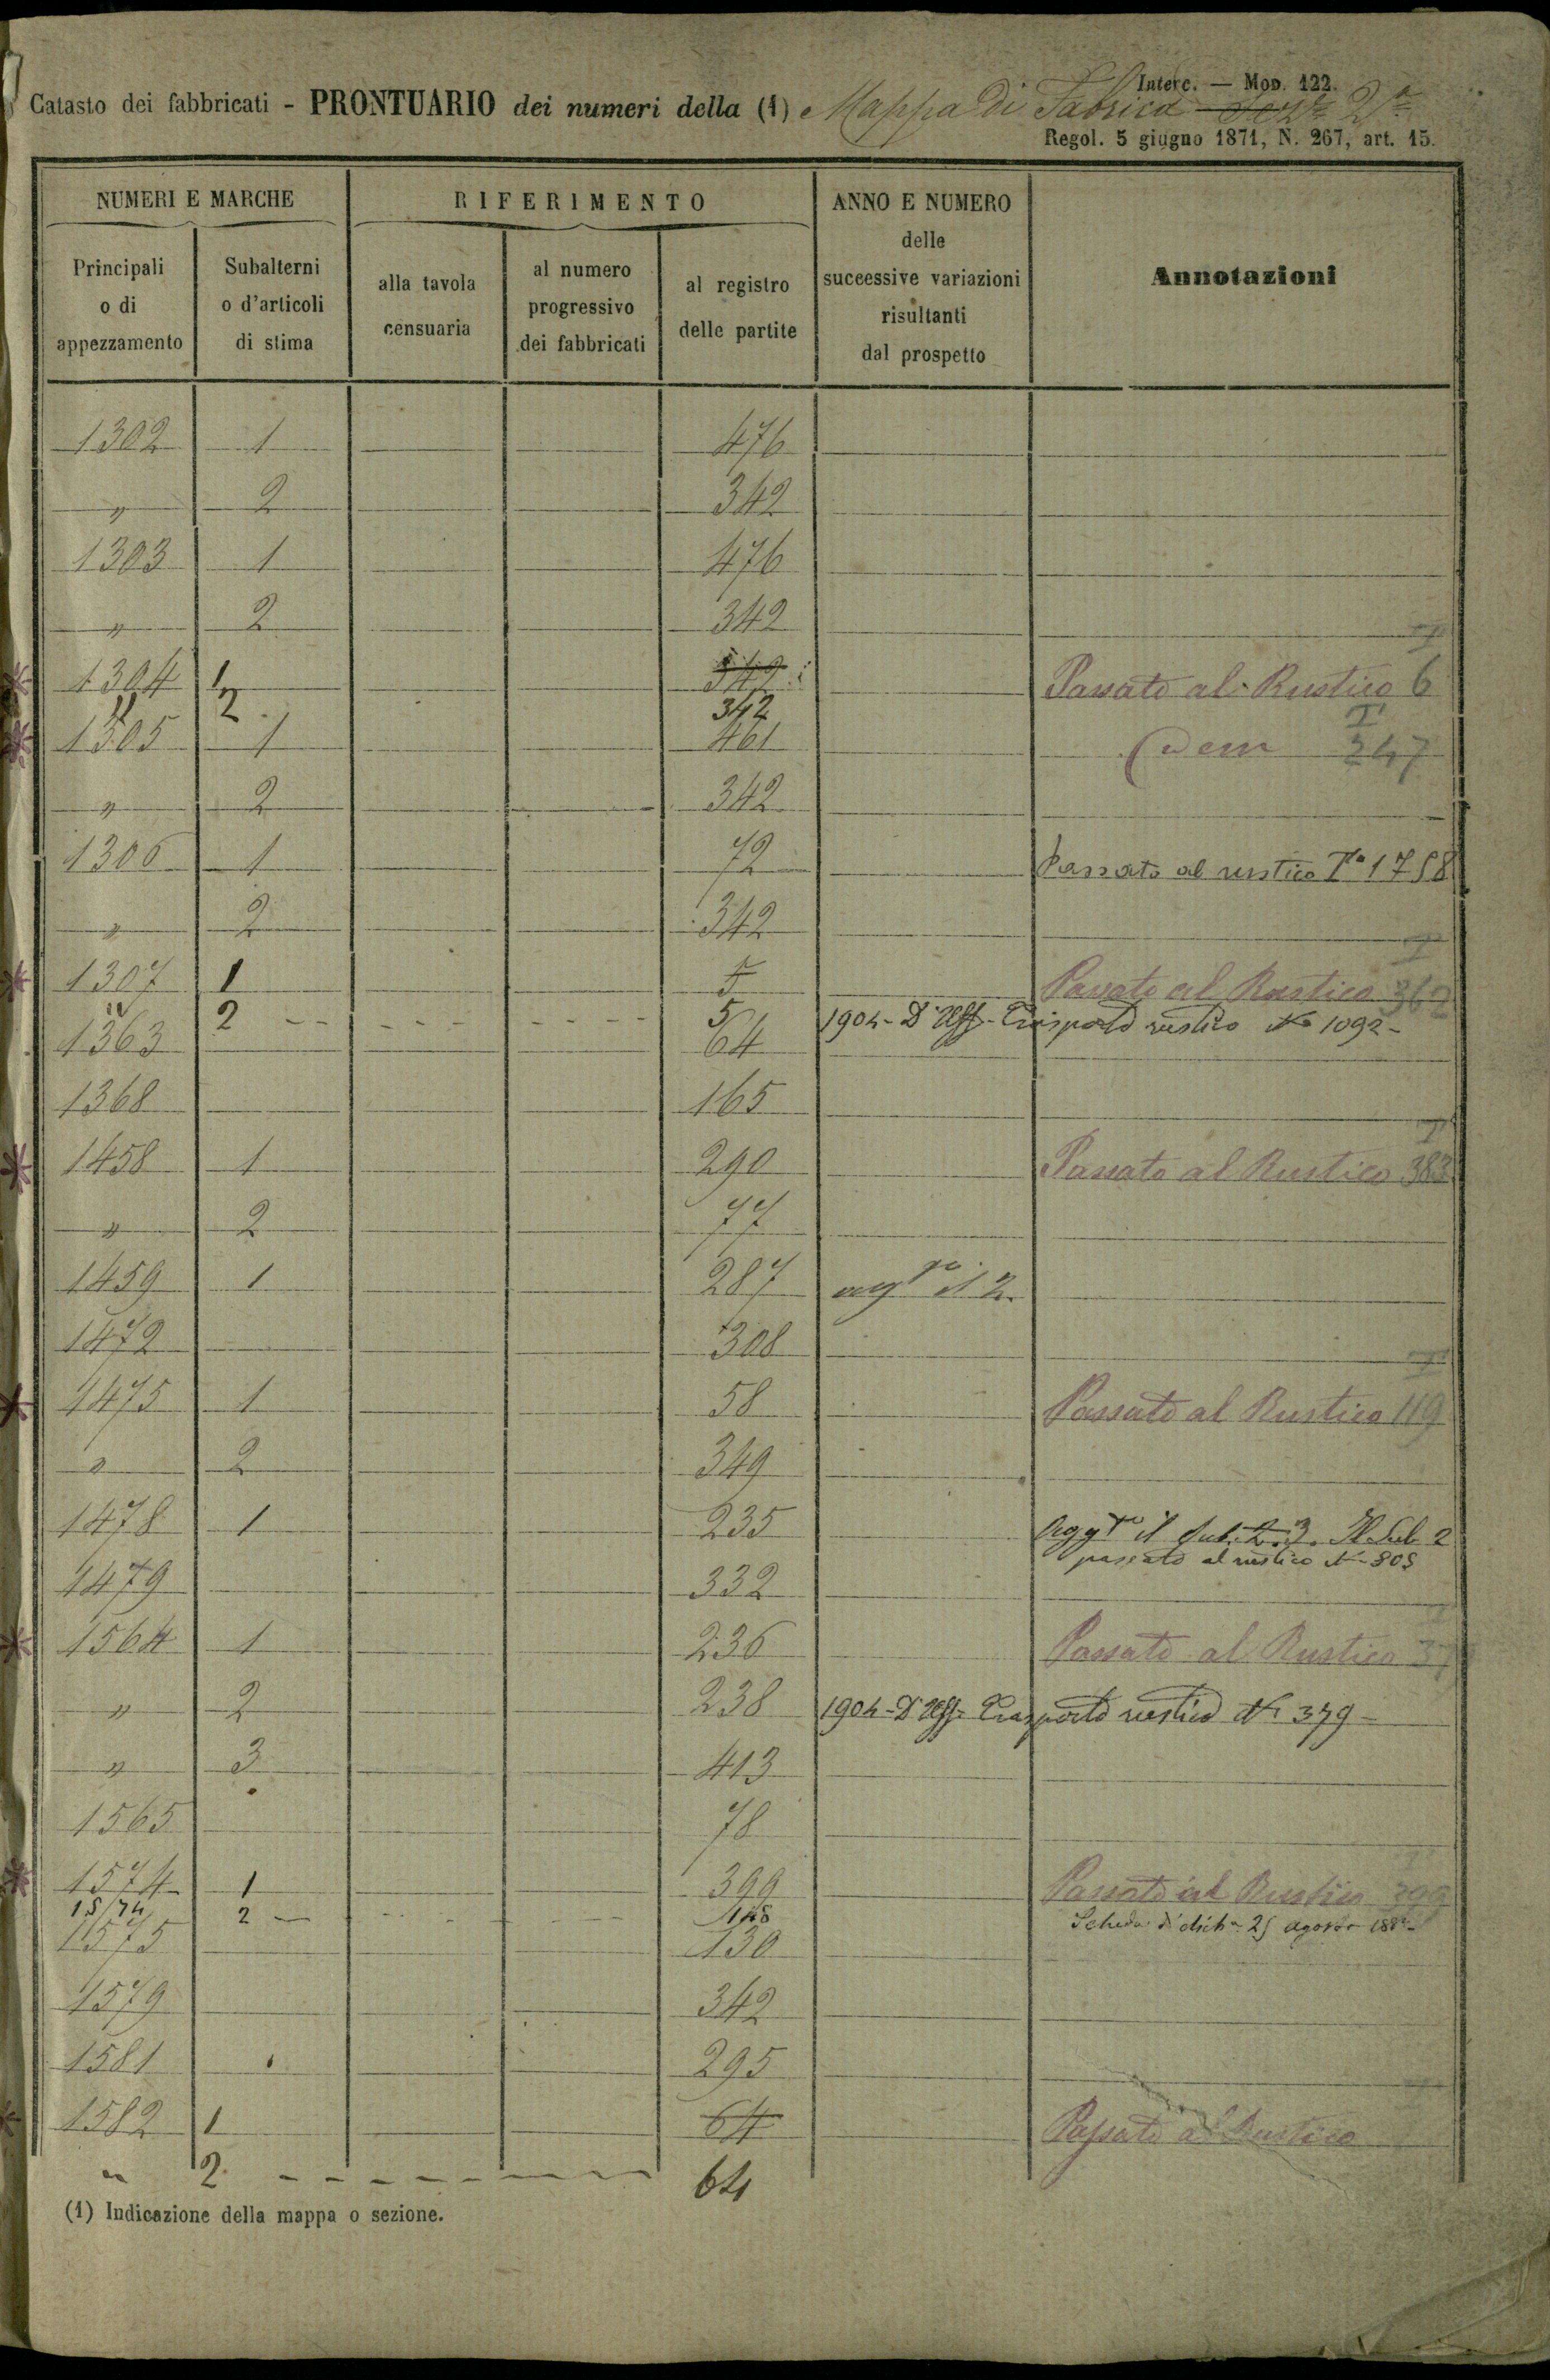 Interc. — Mod. 122.
Catasto dei fabbricati - PRONTUARIO dei numeri della (1) Mappa di Fabrica Sezne 2a
Regol. 5 giugno 1871, N. 267, art. 15.
NUMERI E MARCHE RIFERIMENTO ANNO E NUMERO delle successive variazioni risultanti dal prospetto Annotazioni
Principali o di appezzamento Subalterni o d'articoli di stima alla tavola censuaria al numero progressivo dei fabbricati al registro delle partite
1302 1 476
" 2 342
1303 1 476
" 2 342
1304 1 342 Passato al Rustico I 6
" 2 342
1305 1 461 Idem I 247
" 2 342
1306 1 72 Passato al rustico Ta 1758
" 2 342
1307 1 5 Passato al Rustico I 362
" 2 5 1904 - D'Uff - Trasporto rustico No 1092 -
1363 64
1368 165
1458 1 290 Passato al Rustico I 383
" 2 77
1459 1 287 aggto il 2.
1472 308
1475 1 58 Passato al Rustico I 119
" 2 349
1478 1 235 Aggto il sub. 2. 3. Il Sub 2
passato al rustico N. 805
1479 332
1564 1 236 Passato al Rustico
" 2 238 1904 - D'Uff - Trasporto rustico No 379 -
" 3 413
1565 78
1574 1 399 Passato al Rustico 399
1574 2 Scheda di 25 agosto
1575 130
1579 342
1581 295
1582 1 64 Passato al Rustico
" 2 64
(1) Indicazione della mappa o sezione.